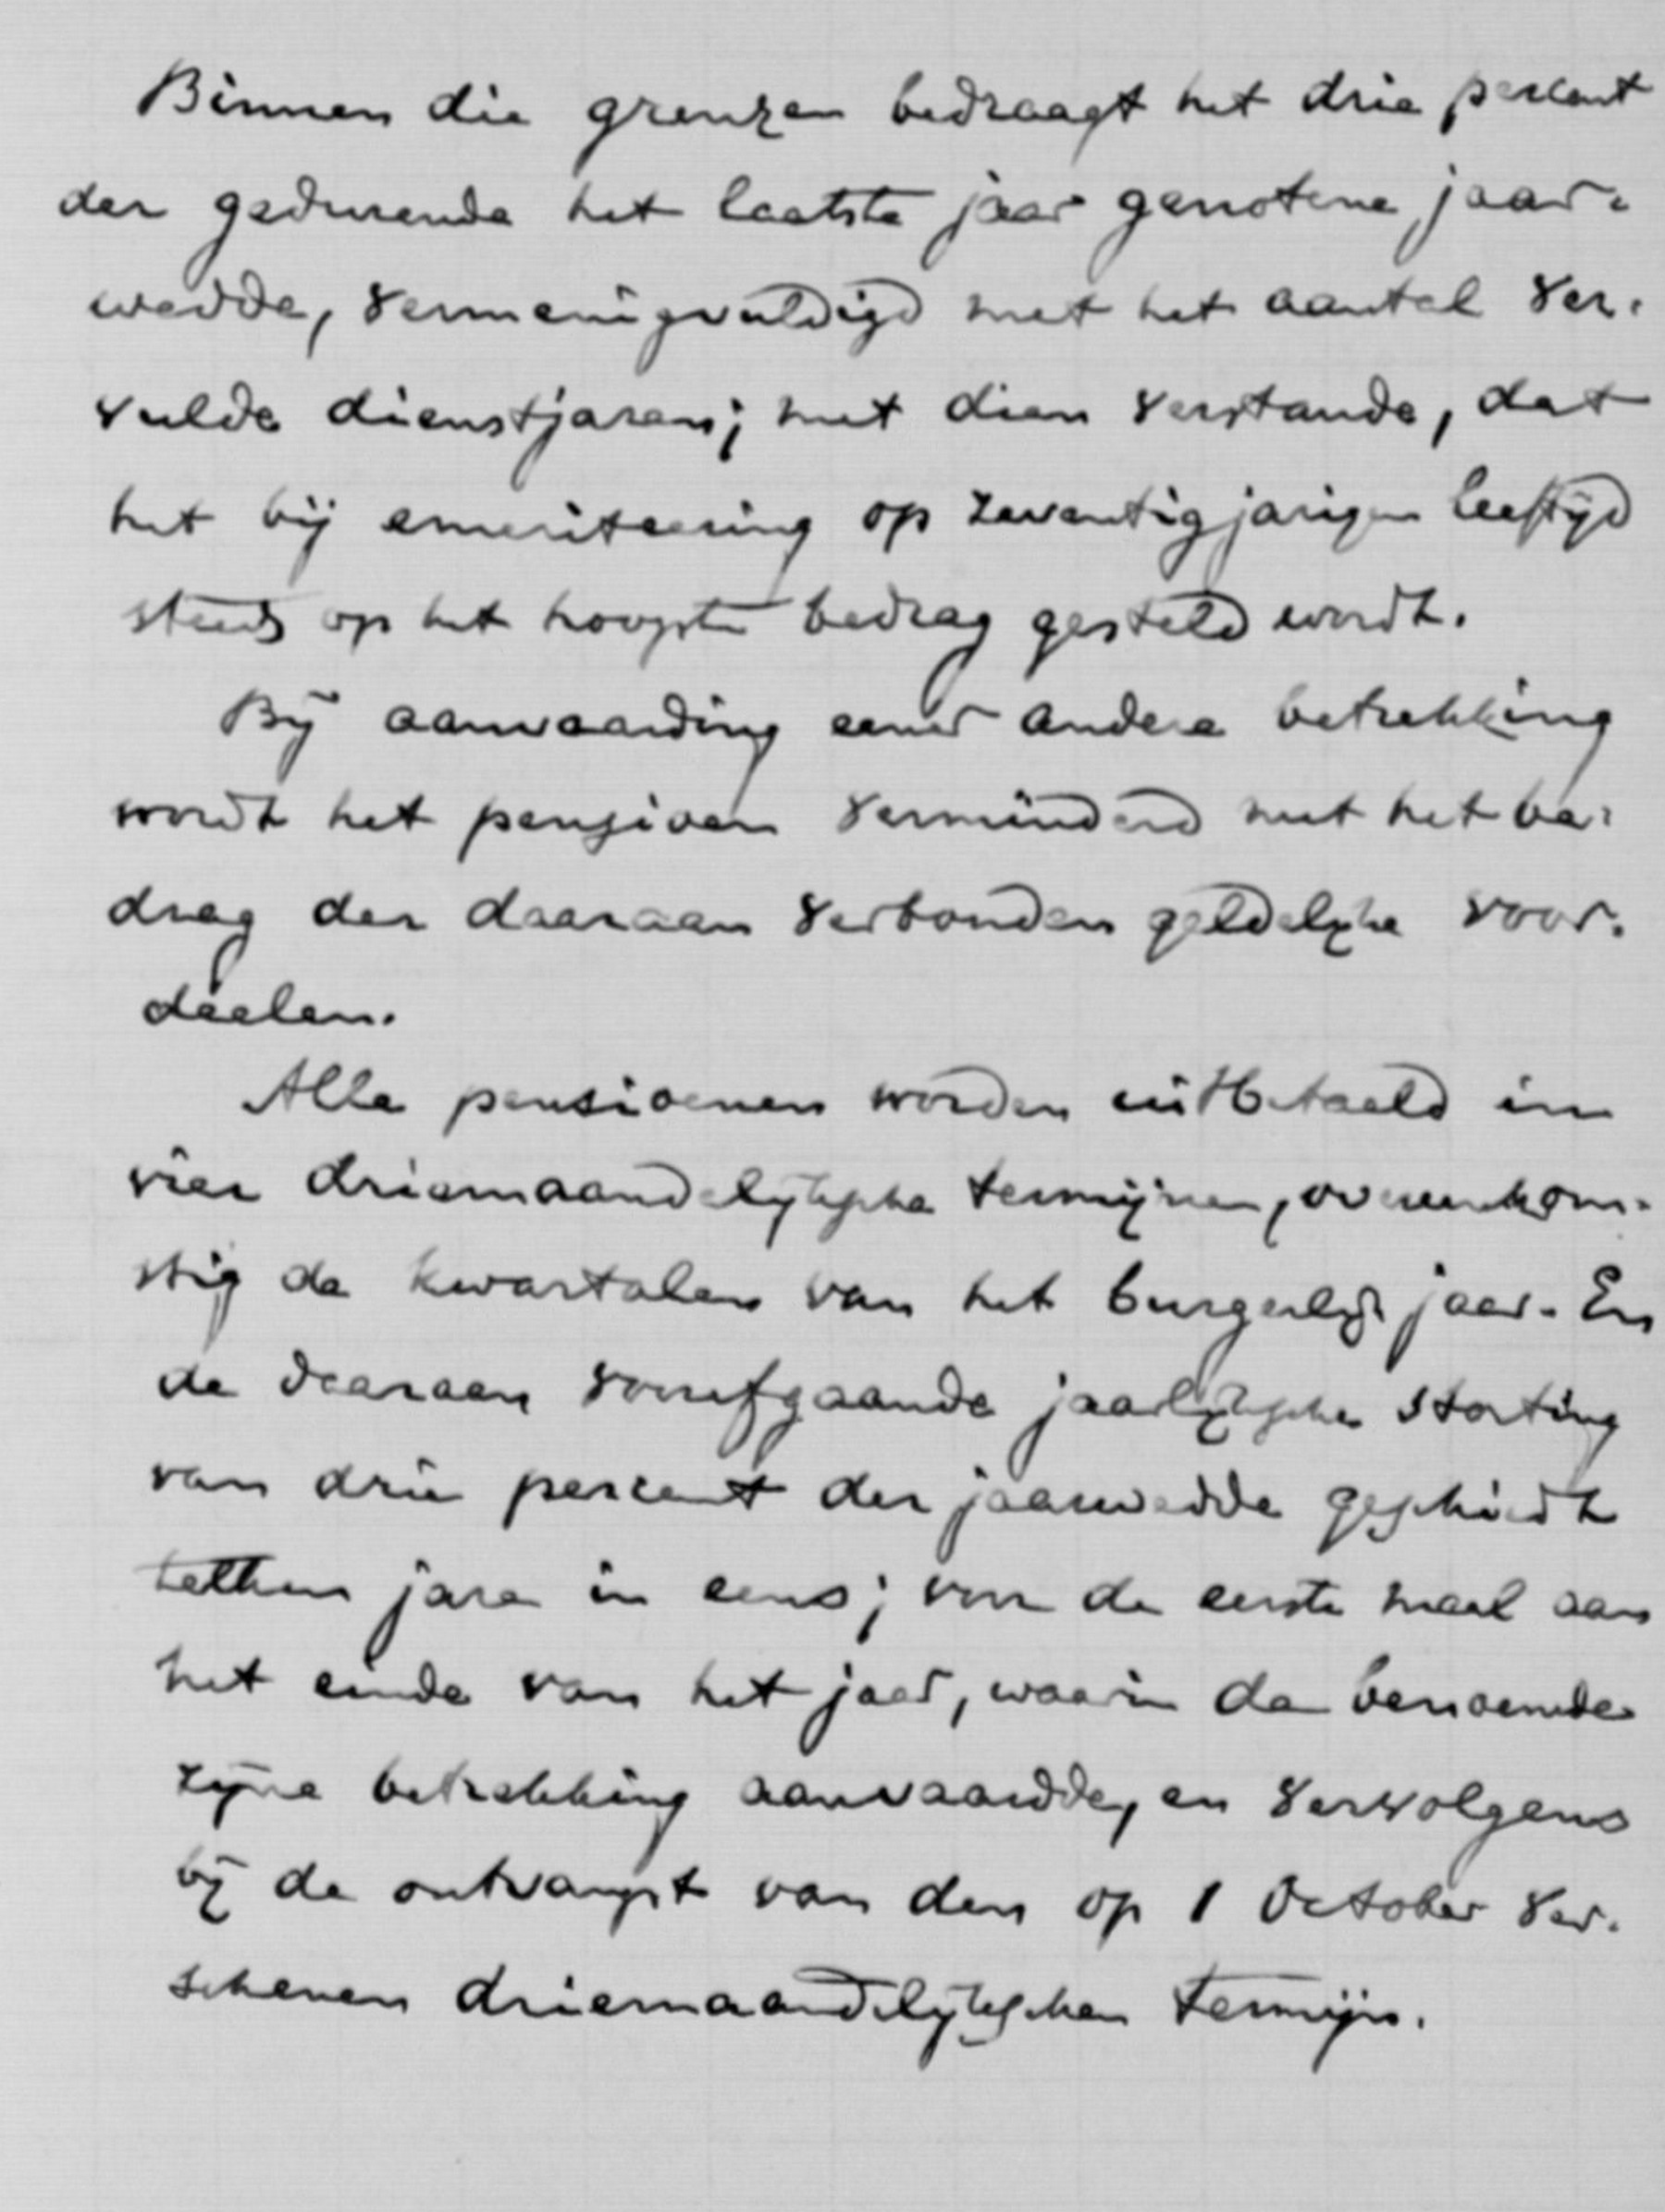 Binnen die grenzen bedraagt het drie percent
der gedurende het laatste jaar genotene jaar-
wedde, vermenigvuldigd met het aantal ver-
vulde dienstjaren; met dien verstande, dat
het bij emeriteering op zeventigjarigen leeftijd
steeds op het hoogste bedrag gesteld wordt.
Bij aanvaarding eener andere betrekking
wordt het pensioen verminderd met het be-
drag der daaraan verbonden geldelijke voor-
deelen.
Alle pensioenen worden uitbetaald in
vier driemaandelijksche termijnen, overeenkom-
stig de kwartalen van het burgerlijk jaar. En
de daaraan voorafgaande jaarlijksche storting
van drie percent der jaarwedde geschiedt
telken jare in eens; voor de eerste maal aan
het einde van het jaar, waarin de benoemde
zijne betrekking aanvaardde, en vervolgens
bij de ontvangst van den op 1 October ver-
schenen driemaandelijkschen termijn.